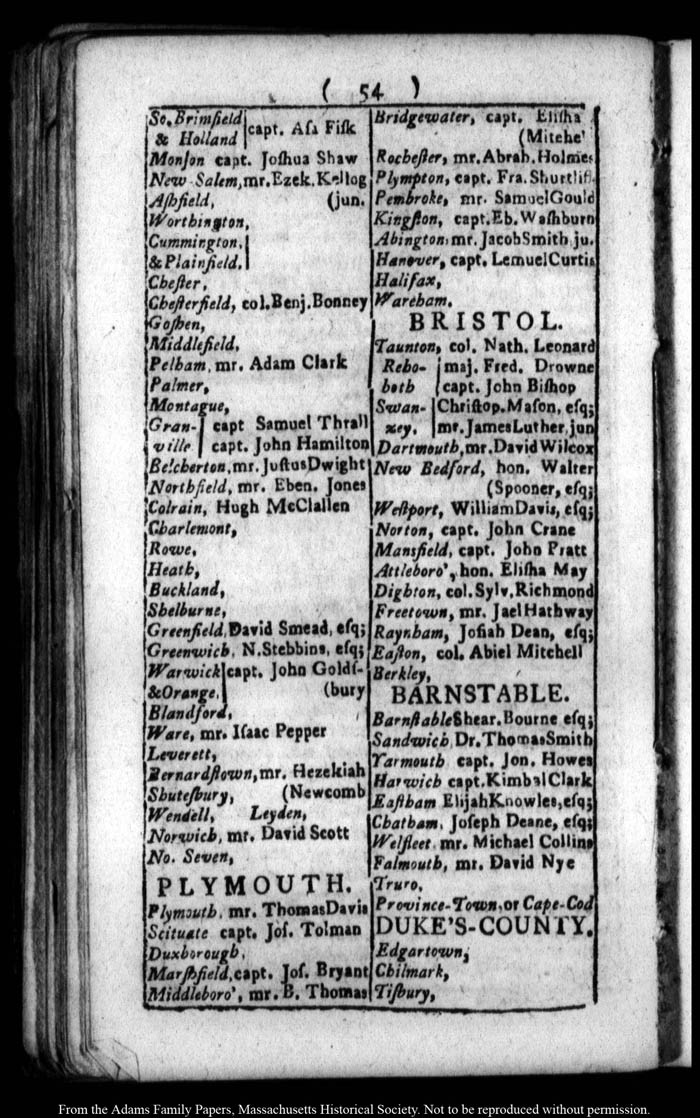 ( 54 )
So. Brimfield
& Holland
capt. Aſa Fiſk
Monſon capt. Joſhua Shaw
New-Salem, mr. Ezek. Kellog
Aſhfield, (jun.
Worthington,
Cummington,
& Plainfield,
Cheſter,
Cheſterfield, col. Benj. Bonney
Goſhen,
Middlefield,
Pelham, mr. Adam Clark
Palmer,
Montague,
Gran- capt Samuel Thrall
ville capt. John Hamilton
Belcherton, mr. Juſtus Dwight
Northfield, mr. Eben. Jones
Colrain, Hugh McClallen
Charlemont,
Rowe,
Heath,
Buckland,
Shelburne,
Greenfield, David Smead, eſq;
Greenwich, N. Stebbins, eſq;
Warwick capt. John Goldſ-
& Orange, (bury
Blandford,
Ware, mr. Iſaac Pepper
Leverett,
Bernardſtown, mr. Hezekiah
Shuteſbury, (Newcomb
Wendell, Leyden,
Norwich, mr. David Scott
No. Seven,
PLYMOUTH.
Plymouth, mr. Thomas Davis
Scituate capt. Joſ. Tolman
Duxborough,
Marſhfield, capt. Joſ. Bryant
Middleboro', mr. B. Thomas
Bridgewater, capt. Eliſha
(Mitchel
Rocheſter, mr. Abrah. Holmes
Plympton, capt. Fra. Shurtliff
Pembroke, mr. Samuel Gould
Kingſton, capt. Eb. Waſhburn
Abington mr. Jacob Smith ju.
Hanover, capt. Lemuel Curtis
Halifax,
Wareham.
BRISTOL.
Taunton, col. Nath. Leonard
Reho- maj. Fred. Drowne
both capt. John Biſhop
Swan- Chriſtop. Maſon, eſq;
zey. mr. James Luther, jun
Dartmouth, mr. David Wilcox
New Bedford, hon. Walter
(Spooner, eſq;
Weſtport, William Davis, eſq;
Norton, capt. John Crane
Mansfield, capt. John Pratt
Attleboro', hon. Eliſha May
Dighton, col. Sylv. Richmond
Freetown, mr. Jael Hathway
Raynham, Joſiah Dean, eſq;
Eaſton, col. Abiel Mitchell
Berkley,
BARNSTABLE.
Barnſtable Shear. Bourne eſq;
Sandwich, Dr. Thomas Smith
Yarmouth capt. Jon. Howes
Harwich capt. Kimbal Clark
Eaſtham Elijah Knowles, eſq;
Chatham, Joſeph Deane, eſq;
Welfleet mr. Michael Collins
Falmouth, mr. David Nye
Truro,
Province-Town, or Cape-Cod
DUKE'S-COUNTY.
Edgartown,
Chilmark,
Tiſbury,
From the Adams Family Papers, Massachusetts Historical Society. Not to be reproduced without permission.